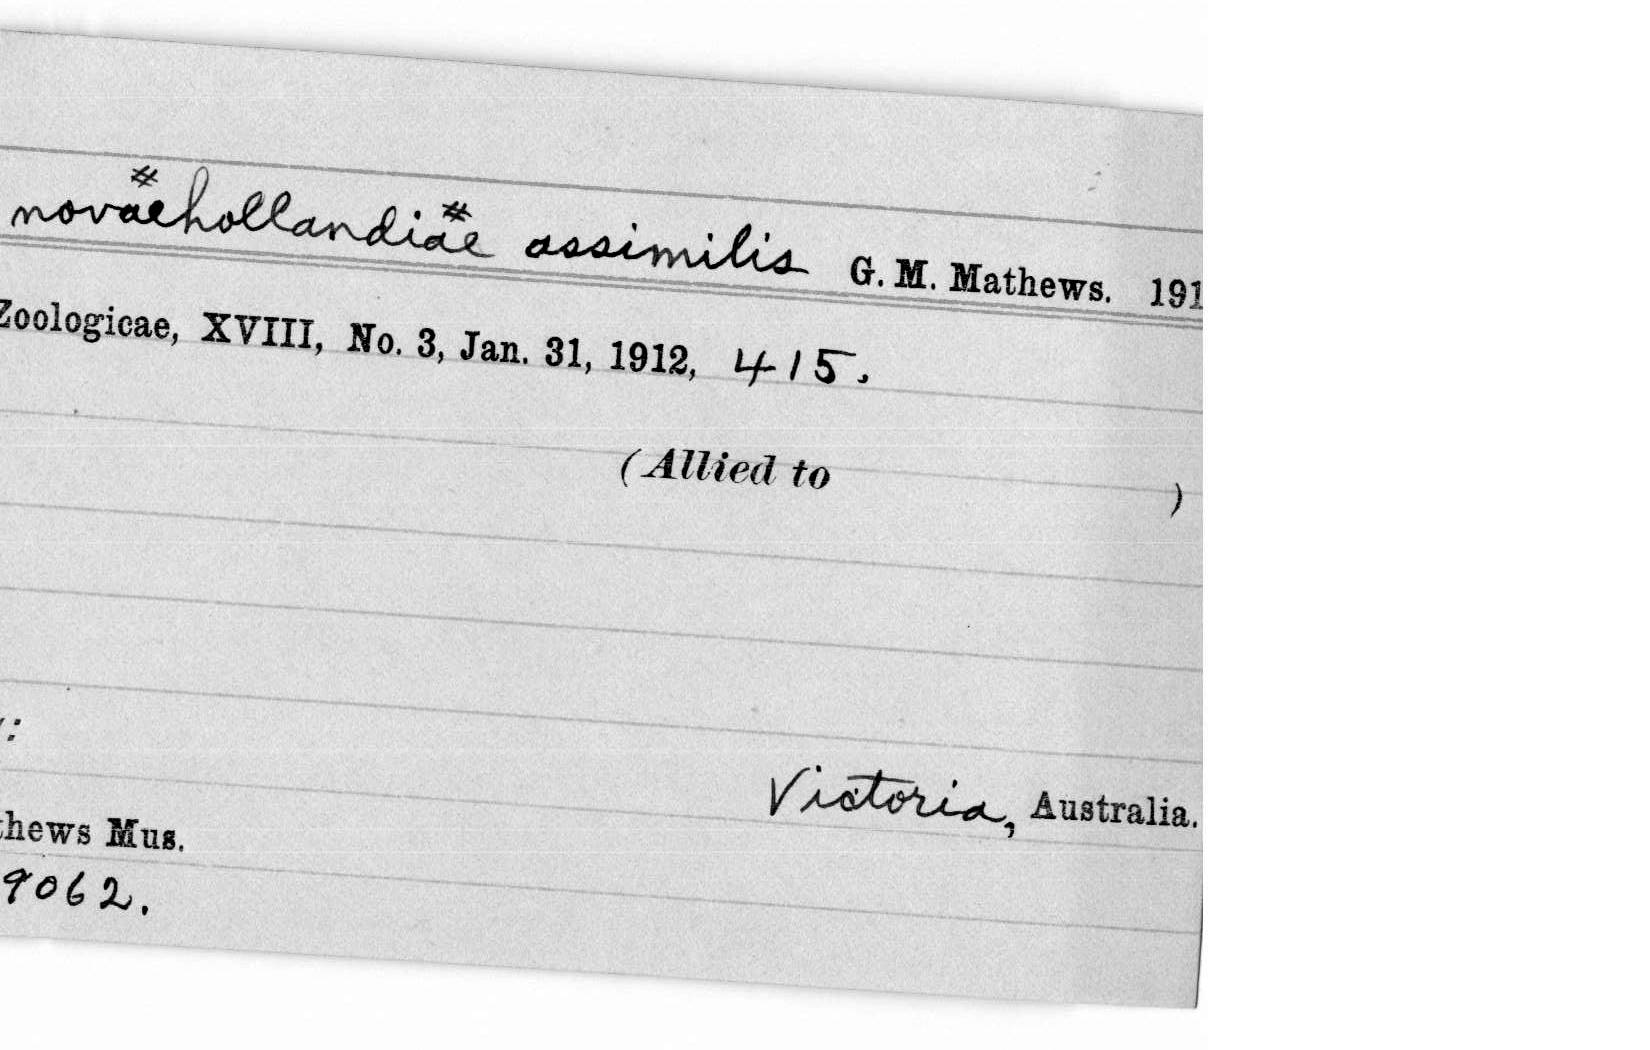 novaehollandiae assimilis G. M. Mathews. 191
Zoologicae, XVIII, No. 3, Jan. 31, 1912, 415.
(Allied to )
:
thews Mus.
Victoria, Australia.
9062.